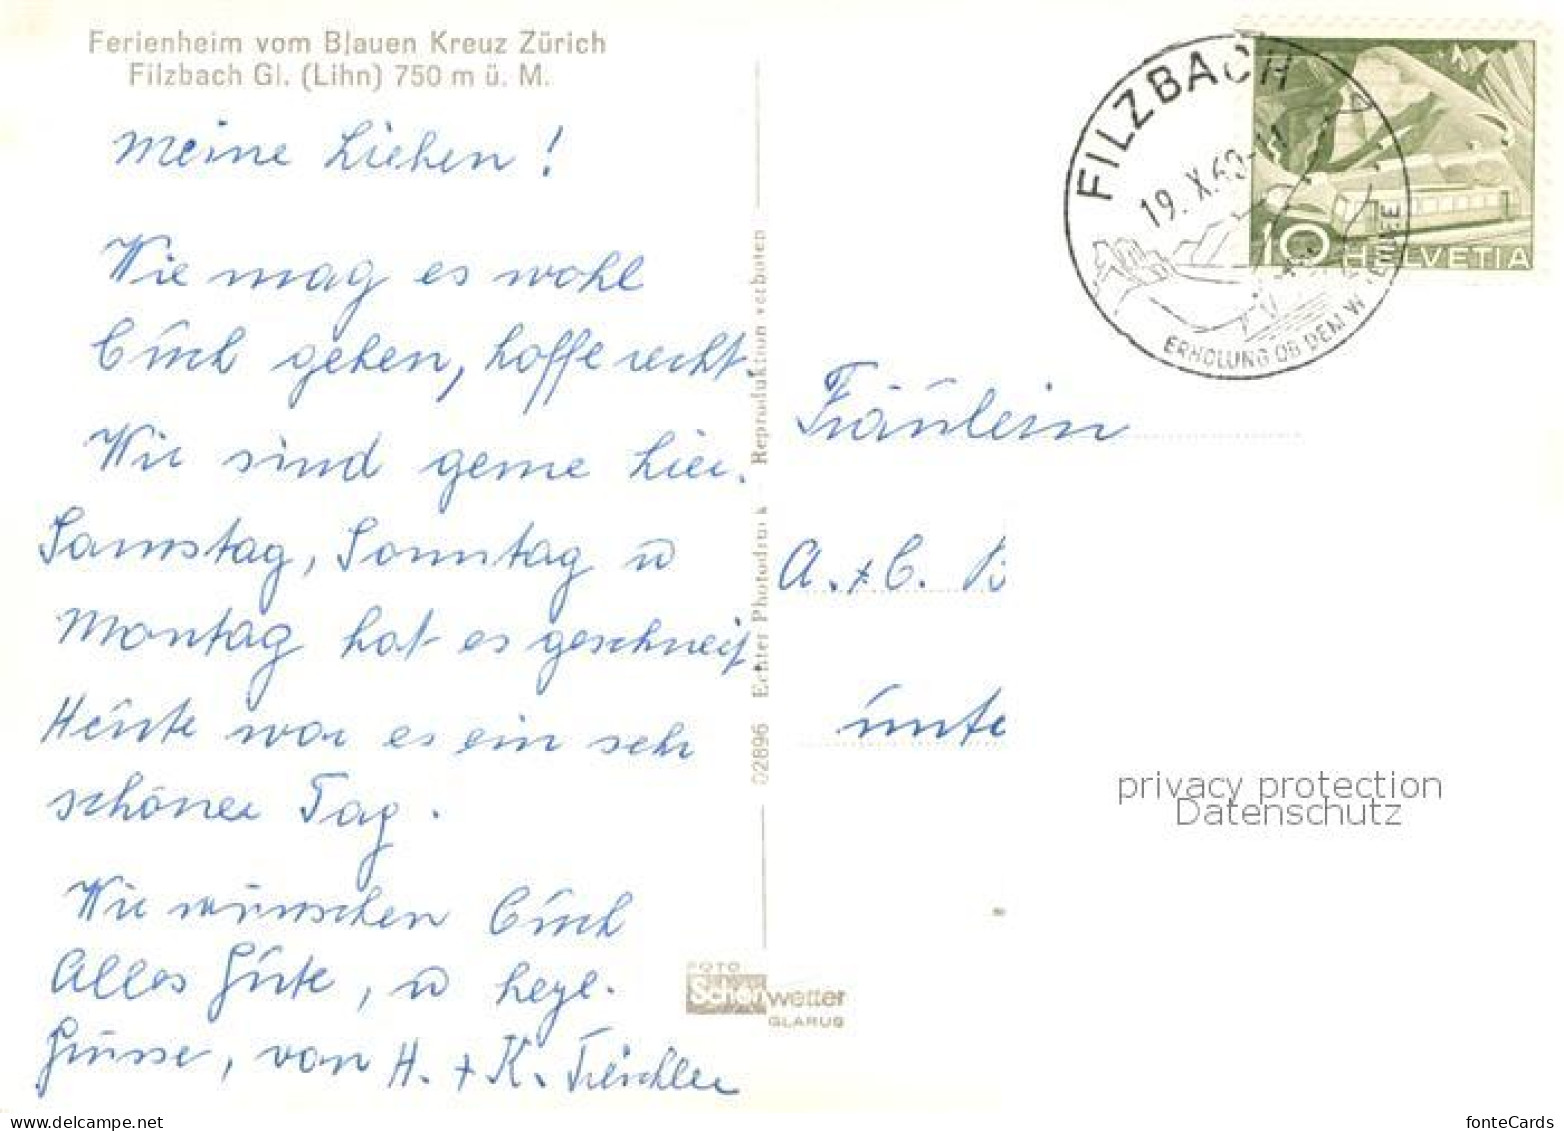 Ferienheim vom Blauen Kreuz Zürich
Filzbach Gl. (Lihn) 750 m ü. M.
Meine Lieben!
Wie mag es wohl
Euch gehen, hoffe recht.
Wir sind gerne hier.
Samstag, Sonntag u
Montag hat es geschneit.
Heute war es ein sehr
schöner Tag.
Wir wünschen Euch
Alles Gute, u herzl.
Grüsse, von H. + K.
02896 Echter Photodruck Reproduktion verboten
FOTO
Schönwetter
GLARUS
FILZBACH
19. X. 60-11
ERHOLUNG OB DEM
10 HELVETIA
Fräulein
A. + C.
unte
privacy protection
Datenschutz
www.delcampe.net
fonteCards